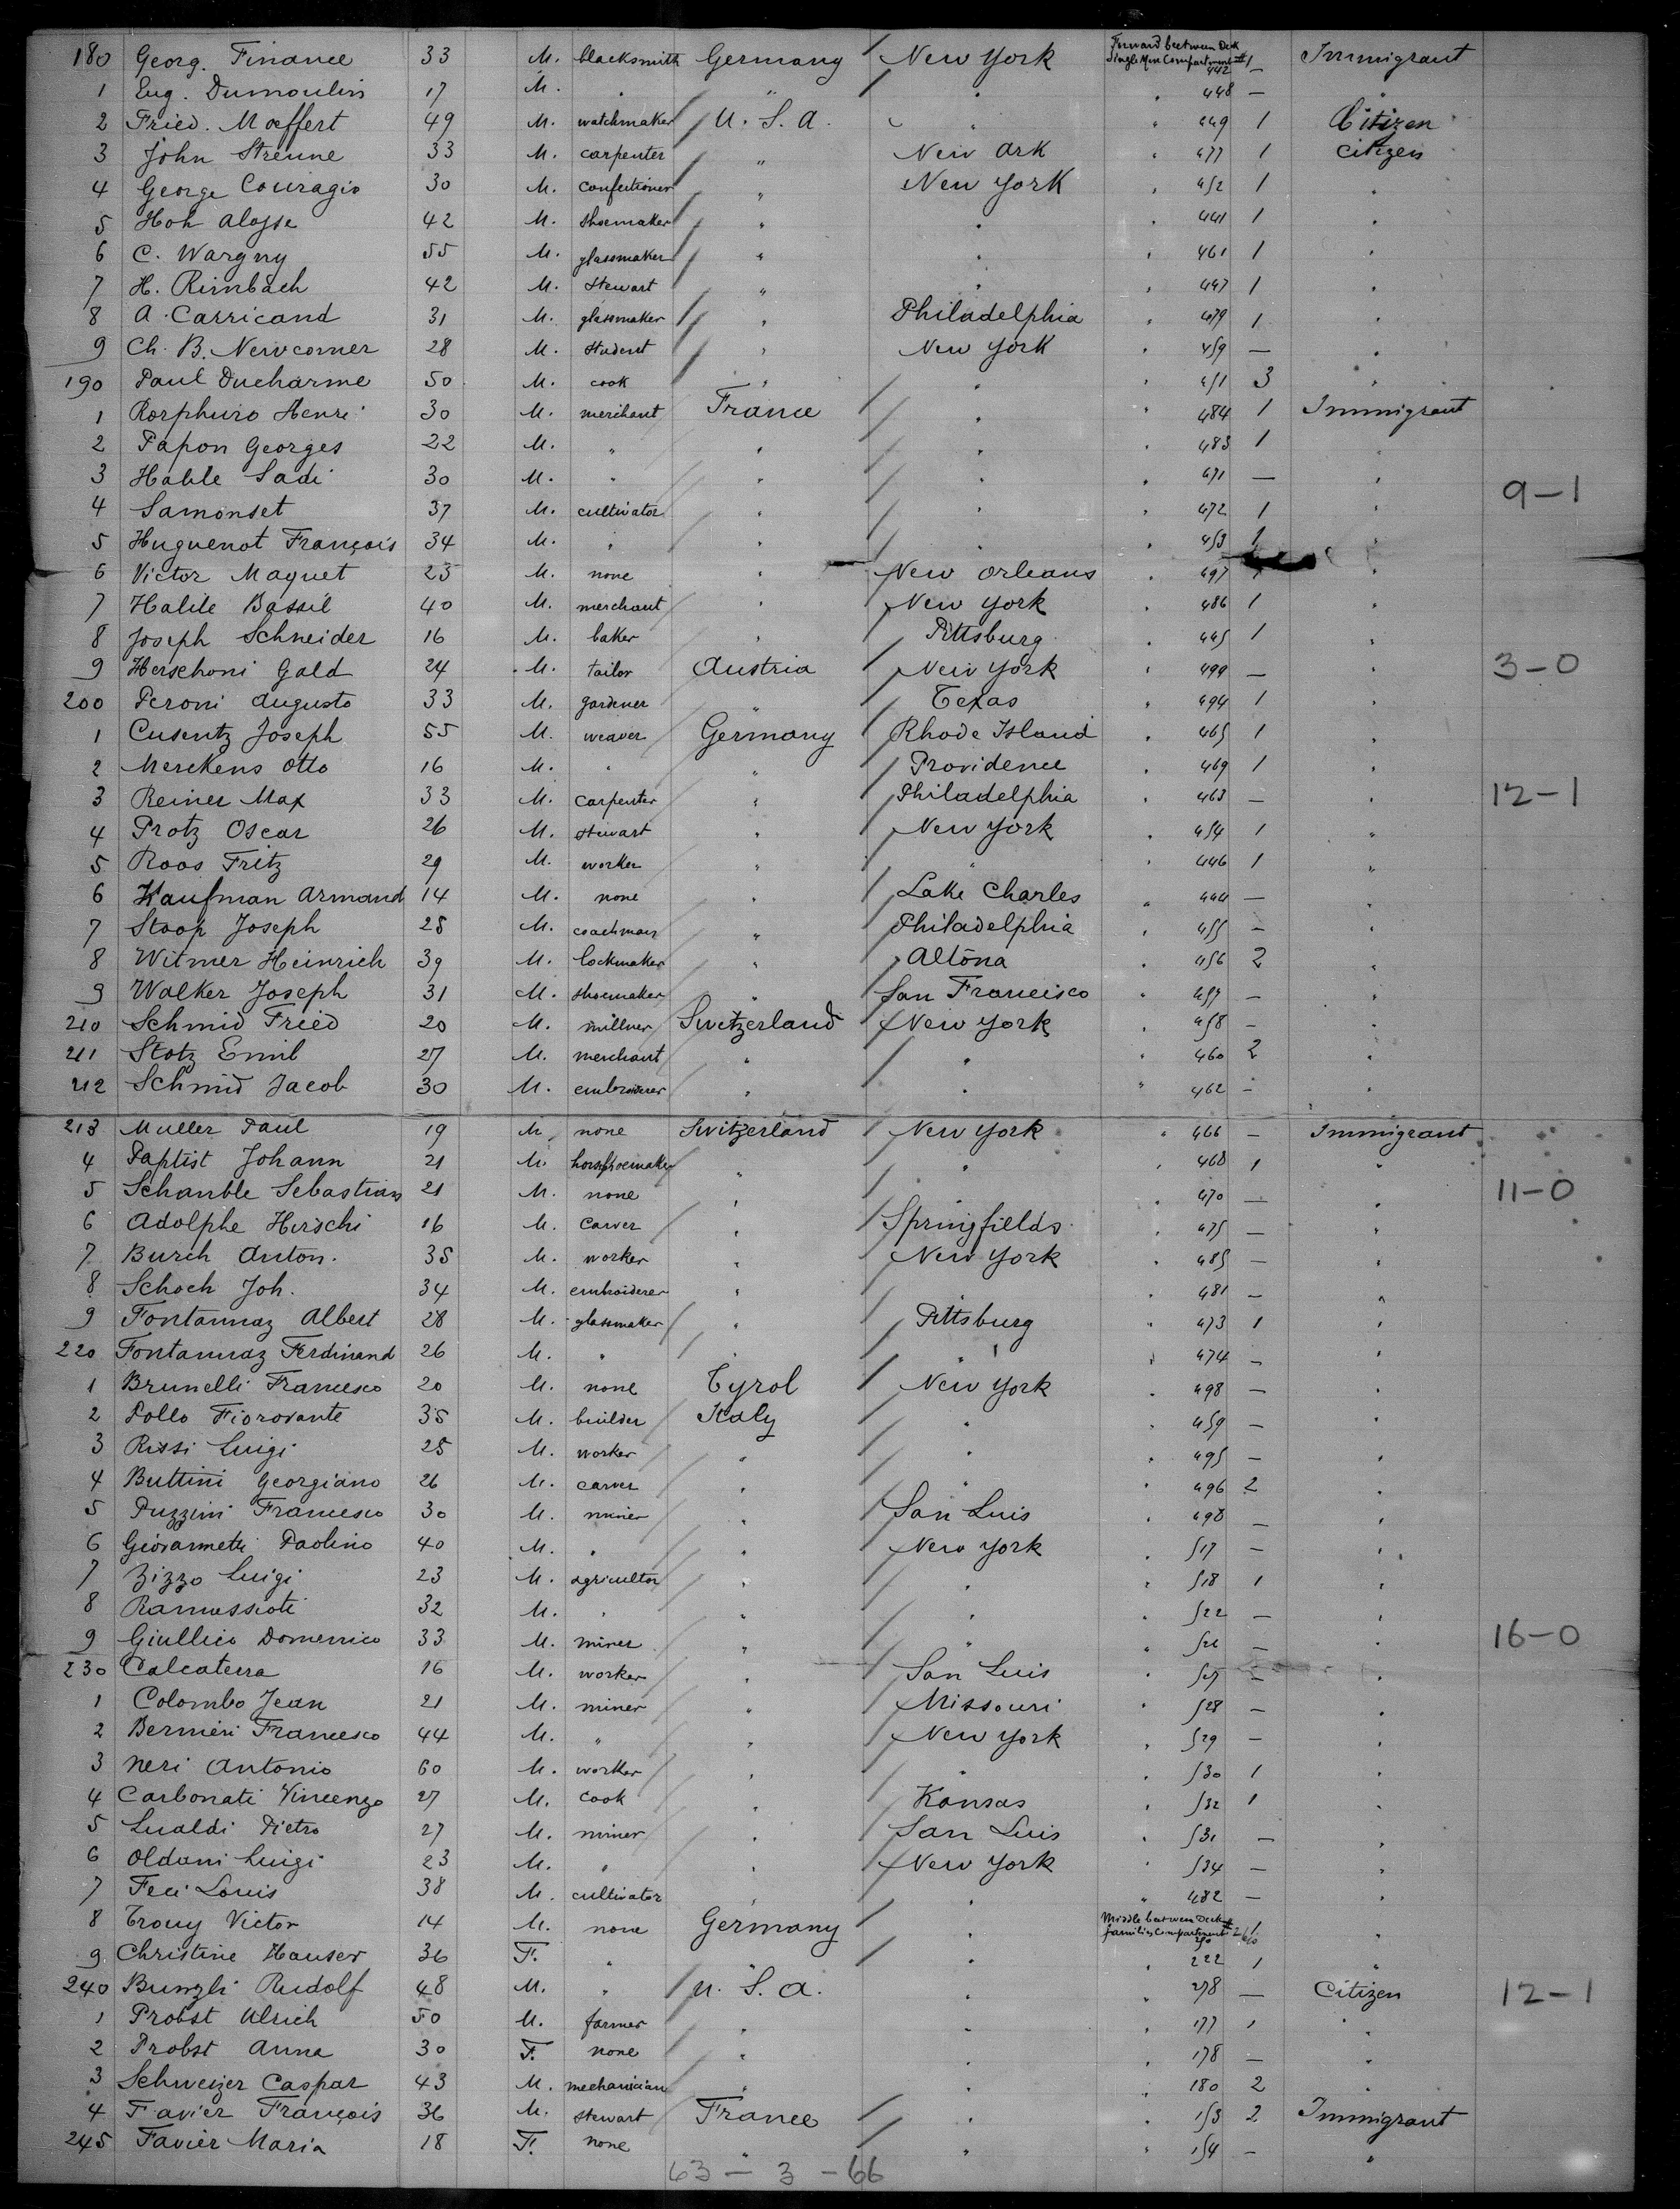 180 Georg. Finance 33 M. blacksmith Germany New York Forward between Deck Single Men Compartment #1 442 — Immigrant
1 Eug. Dumoulin 17 M. " " " " 448 — "
2 Fried. Moeffert 49 M. watchmaker U. S. A. " " 449 1 Citizen
3 John Streune 33 M. carpenter " New ark " 477 1 citizen
4 George Couragio 30 M. confectioner " New York " 452 1 "
5 Hoh Aloyse 42 M. shoemaker " " " 441 1 "
6 C. Wargny 55 M. glassmaker " " " 461 1 "
7 H. Rimbach 42 M. Stewart " " " 447 1 "
8 A. Carricand 31 M. glassmaker " Philadelphia " 479 1 "
9 Ch. B. Newcomer 28 M. Student " New York " 459 — "
190 Paul Ducharme 50 M. cook " " " 451 3 "
1 Rorphuro Henri 30 M. merchant France " " 484 1 Immigrant
2 Papon Georges 22 M. " " " " 483 1 "
3 Hable Sadi 30 M. " " " " 471 — "
9-1
4 Samonset 37 M. cultivator " " " 472 1 "
5 Huguenot François 34 M. " " " " 453 1 "
6 Victor Maquet 25 M. none " New Orleans " 497 "
7 Halile Bassil 40 M. merchant " New York " 486 1 "
8 Joseph Schneider 16 M. baker " Pittsburg " 445 1 "
9 Herschoni Gald 24 M. tailor Austria New York " 499 — " 3-0
200 Peroni Augusto 33 M. gardener " Texas " 494 1 "
1 Cusentz Joseph 55 M. weaver Germany Rhode Island " 465 1 "
2 Merckens Otto 16 M. " " Providence " 469 1 "
3 Reiner Max 33 M. carpenter " Philadelphia " 463 — " 12-1
4 Protz Oscar 26 M. stewart " New York " 454 1 "
5 Roos Fritz 29 M. worker " " " 446 1 "
6 Kaufman Armand 14 M. none " Lake Charles " 444 — "
7 Stoop Joseph 25 M. coachman " Philadelphia " 455 — "
8 Witmer Heinrich 39 M. lockmaker " Altona " 456 2 "
9 Walker Joseph 31 M. shoemaker " San Francisco " 457 — "
210 Schmid Fried 20 M. millner Switzerland New York " 458 — "
211 Stotz Emil 27 M. merchant " " " 460 2 "
212 Schmid Jacob 30 M. embroiderer " " " 462 — "
213 Muller Paul 19 M. none Switzerland New York " 466 — Immigrant
4 Baptist Johann 21 M. horseshoemaker " " " 468 1 "
5 Schauble Sebastian 21 M. none " " " 470 — " 11-0
6 Adolphe Hirschi 16 M. Carver " Springfields " 475 — "
7 Burch Anton. 35 M. worker " New York " 485 — "
8 Schoch Joh. 34 M. embroiderer " " " 481 — "
9 Fontannaz Albert 28 M. glassmaker " Pittsburg " 473 1 "
220 Fontannaz Ferdinand 26 M. " " " " 474 — "
1 Brunelli Francesco 20 M. none Tyrol New York " 498 — "
2 Pollo Fiorovante 35 M. builder Italy " " 459 — "
3 Rissi Luigi 25 M. worker " " " 495 — "
4 Buttini Georgiano 26 M. carver " " " 496 2 "
5 Puzzini Francesco 30 M. miner " San Luis " 498 — "
6 Giovannetti Paolino 40 M. " " New York " 517 — "
7 Zizzo Luigi 23 M. agricultor " " " 518 1 "
8 Ramussioti 32 M. " " " " 522 — "
9 Giullico Domenico 33 M. miner " " " 526 — " 16-0
230 Calcaterra 16 M. worker " San Luis " 527 — "
1 Colombo Jean 21 M. miner " Missouri " 528 — "
2 Bernieri Francesco 44 M. " " New York " 529 — "
3 Neri Antonio 60 M. worker " " " 530 1 "
4 Carbonati Vincenzo 27 M. Cook " Kansas " 532 1 "
5 Lualdi Pietro 27 M. miner " San Luis " 531 — "
6 Oldani Luigi 23 M. " " New York " 534 — "
7 Feci Louis 38 M. cultivator " " " 482 — "
8 Trouy Victor 14 M. none Germany " Middle between Deck families Compartment 1 "
9 Christine Hauser 36 F. " " " " 222 1 "
240 Bunzli Rudolf 48 M. " U. S. A. " " 278 — Citizen 12-1
1 Probst Ulrich 50 M. farmer " " " 177 1 "
2 Probst Anna 30 F. none " " " 178 — "
3 Schweizer Caspar 43 M. mechanician " " " 180 2 "
4 Favier François 36 M. stewart France " " 153 2 Immigrant
245 Favier Maria 18 F. none " " " 154 — "
63 — 3 — 66